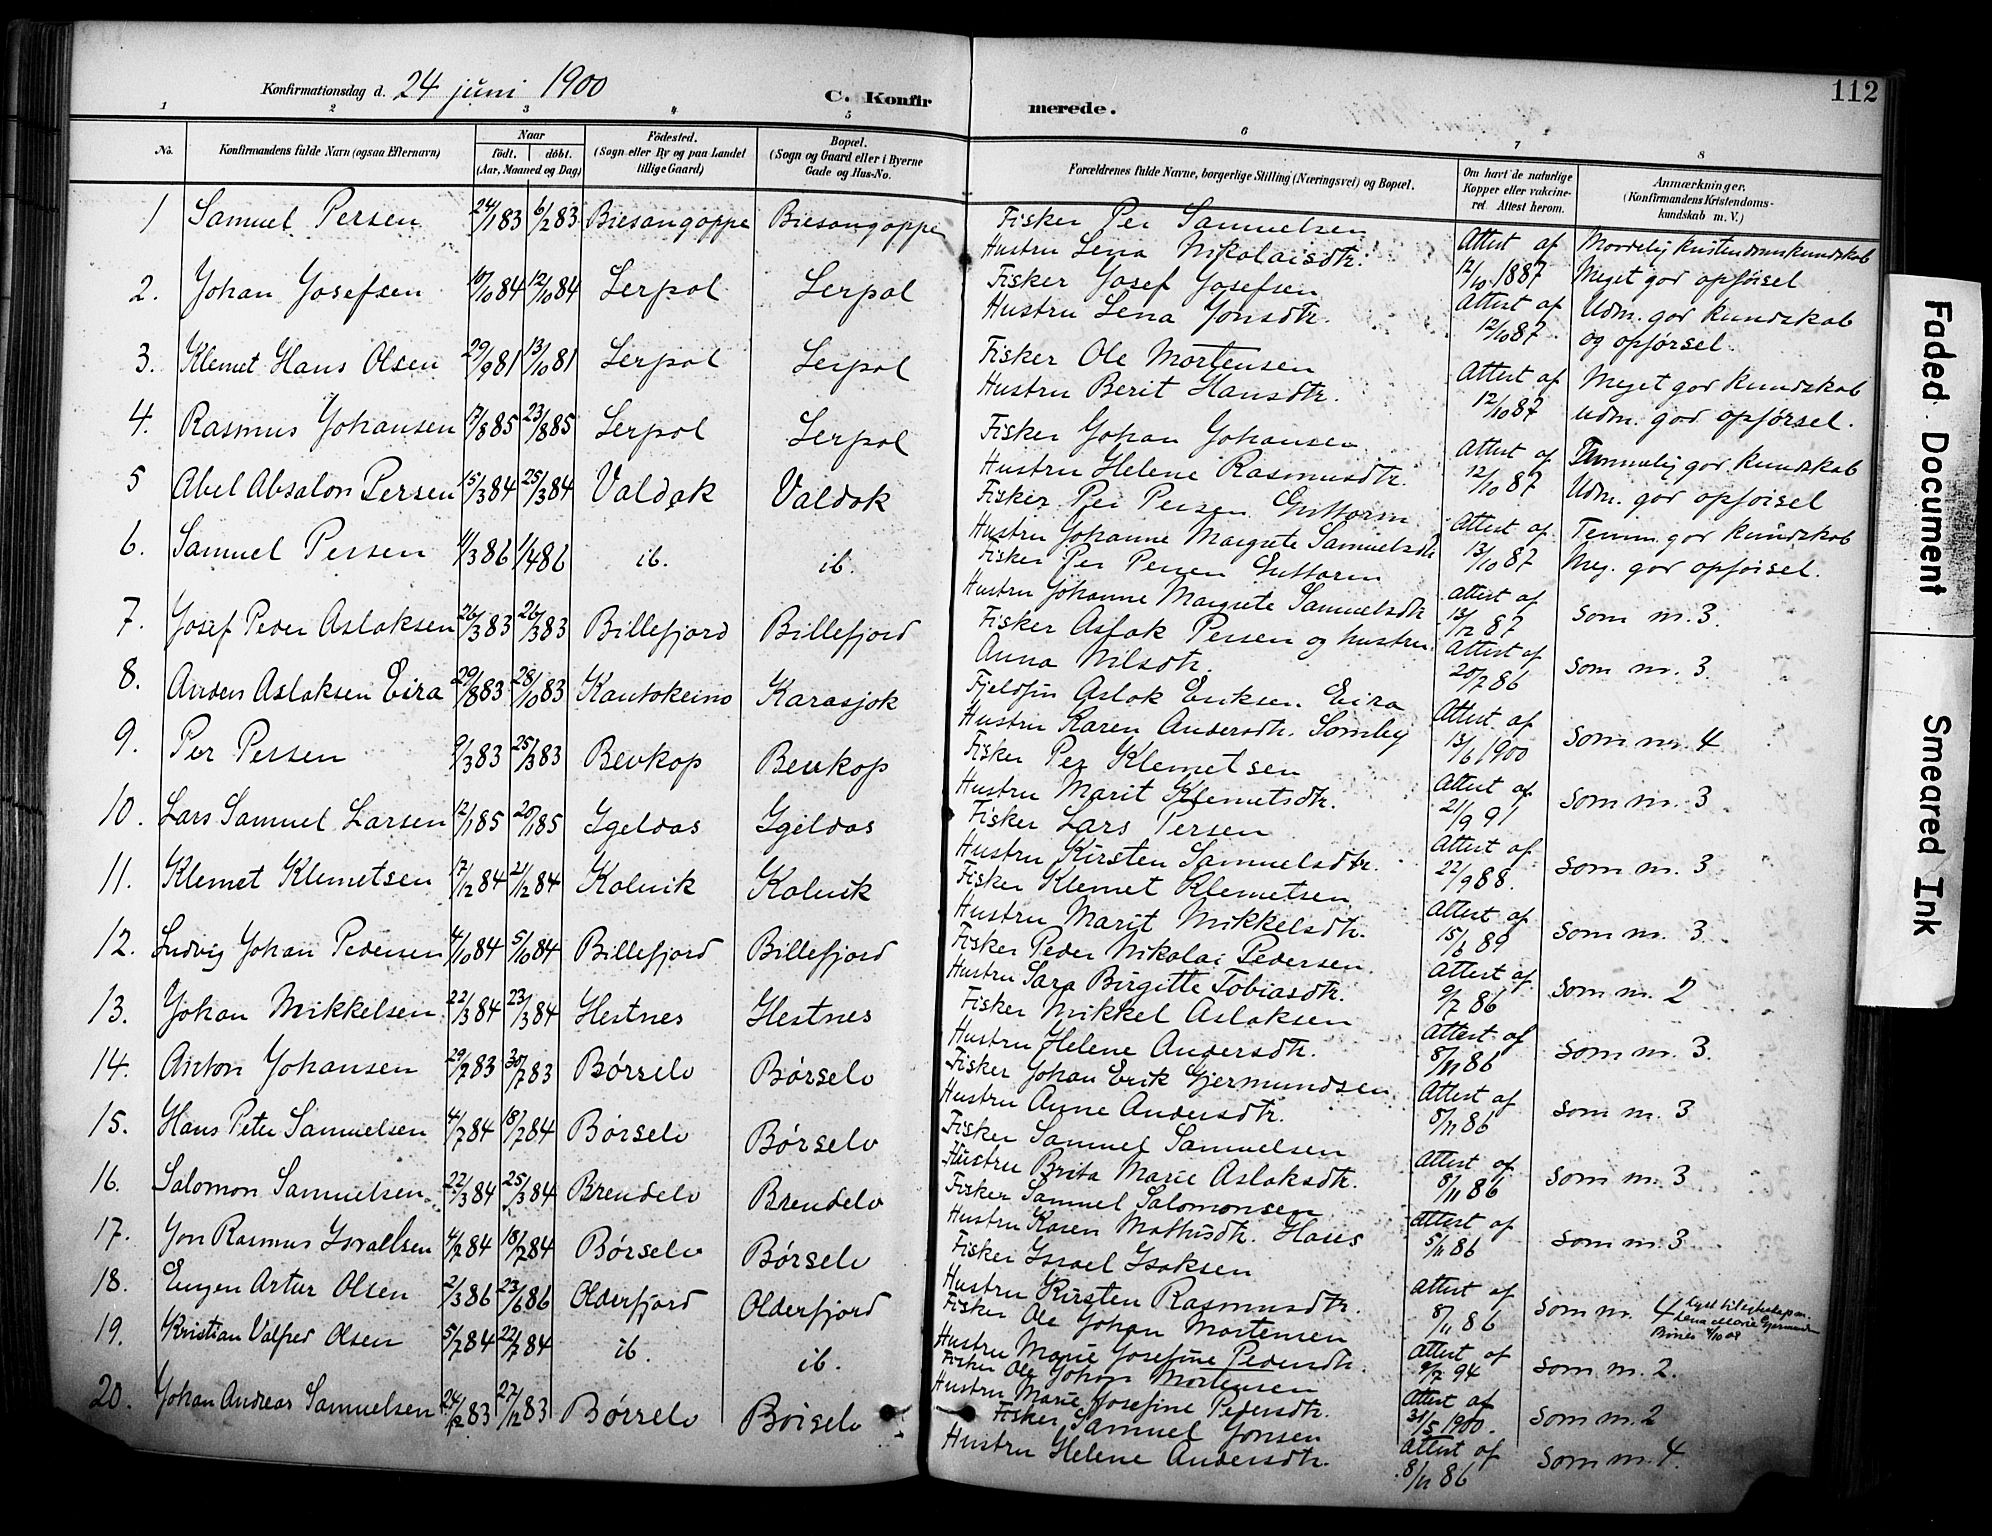 Konfirmationsdag d. 24 juni 1900 C. Konfir merede. 112
1 2 3 4 5 6 7 8
No. Konfirmandens fulde Navn (ogsaa Efternavn) Naar født. døbt. (Aar, Maaned og Dag) Fødested. (Sogn eller By og paa Landet tillige Gaard) Bopæl. (Sogn og Gaard eller i Byerne Gade og Hus-No. Forældrenes fulde Navne, borgerlige Stilling (Næringsvei) og Bopæl. Om havt de naturlige Kopper eller vakcineret. Attest herom. Anmærkninger. (Konfirmandens Kristendomskundskab m. V.)
1 Samuel Persen 24/1 83 6/2 83 Biesangoppe Biesangoppe Fisker Per Samuelsen Attest af kristendomskundskab
Hustru Lena Nikolaisdtr. 12/10 1887 Meget god opførsel
2. Johan Josefsen 10/10 84 12/10 84 Lerpol Lerpol Fisker Josef Josefsen Attest af Udm. god kundskab
Hustru Lena Jonsdtr. 12/10 87 og opførsel.
3. Klemet Hans Olsen 29/9 81 13/10 81 Lerpol Lerpol Fisker Ole Mortensen Attest af Meget god kundskab
Hustru Berit Hansdtr. 12/10 87 udm. god opførsel.
4. Rasmus Johansen 17/8 85 23/8 85 Lerpol Lerpol Fisker Johan Johansen Attest af Temmelig god kundskab
Hustru Helene Rasmusdtr. 12/10 87 Udm. god opførsel
5 Abel Absalon Persen 15/3 84 25/3 84 Valdak Valdak Fisker Per Persen Guttorm Attest af Temm. god kundskab
Hustru Johanne Margrete Samuelsdtr 13/10 87 Meg. god opførsel.
6. Samuel Persen /3 86 1/4 86 ib. ib. Fisker Per Persen Guttorm Attest af som nr. 3.
Hustru Johanne Margrete Samuelsdtr 87
7. Josef Peder Aslaksen 26/3 83 26/3 83 Billefjord Billefjord Fisker Aslak Persen og hustru Attest af som nr. 3.
Anna Nilsdtr. 20/7 86
8. Anders Aslaksen Eira 29/8 83 28/10 83 Kautokeino Karasjok Fjeldfin Aslak Eriksen Eira Attest af som nr. 4
Hustru Karen Andersdtr. Somby 13/6 1900
9. Per Persen 9/3 83 25/3 83 Bevkop Bevkop Fisker Per Klemetsen Attest af som nr. 3
Hustru Marit Klemetsdtr. 21/9 91
10. Lars Samuel Larsen 12/1 85 20/1 85 Igeldas Igeldas Fisker Lars Persen Attest af som nr. 3
Hustru Kirsten Samuelsdtr. 22/9 88.
11. Klemet Klemetsen 17/12 84 21/12 84 Kolvik Kolvik Fisker Klemet Klemetsen Attest af som nr. 3
Hustru Marit Mikkelsdtr. 15/6 89
12. Ludvig Johan Pedersen 4/10 84 5/10 84 Billefjord Billefjord Fisker Peder Nikolai Pedersen Attest af som nr. 2
Hustru Sara Birgitte Tobiasdtr. 9/7 86
13. Johan Mikkelsen 22/3 84 23/3 84 Hestnes Hestnes Fisker Mikkel Aslaksen Attest af som nr. 3.
Hustru Helene Andersdtr. 8/11 86
14. Anton Johansen 29/7 83 30/7 83 Børselv Børselv Fisker Johan Erik Gjermundsen Attest af som nr. 3
Hustru Anne Andersdtr. 8/11 86
15. Hans Peter Samuelsen 4/2 84 18/2 84 Børselv Børselv Fisker Samuel Samuelsen Attest af som nr. 3
Hustru Brita Marie Aslaksdtr. 8/11 86
16. Salomon Samuelsen 22/3 84 25/3 84 Brendelv Brendelv Fisker Samuel Salomonsen Attest af som nr. 3
Hustru Karen Mathisdtr. 5/11 86
17. Jon Rasmus Isralsen 4/2 84 18/2 84 Børselv Børselv Fisker Israel Isaksen Attest af som nr. 4
Hustru Kirsten Rasmusdtr. 8/11 86
18. Eugen Artur Olsen 2/3 86 23/6 86 Olderfjord Olderfjord Fisker Ole Johan Mortensen Attest af som nr. 2.
Hustru Marie Josefine Pedersdtr. 9/7 94
19. Kristian Valfred Olsen 5/7 84 22/7 84 ib. ib. Fisker Ole Johan Mortensen Attest af som nr. 2
Hustru Marie Josefine Pedersdtr. 31/5 1900.
20. Johan Andreas Samuelsen 24/12 83 27/12 83 Børselv Børselv Fisker Samuel Jonsen Attest af som nr. 4.
Hustru Helene Andersdtr. 8/11 86
Faded Document
Smeared Ink